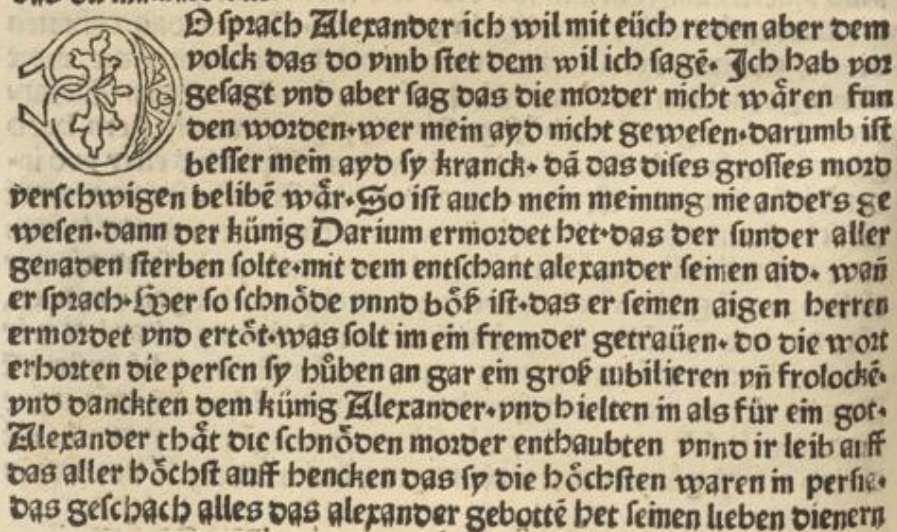 DO sprach Alexander ich wil mit eüch reden aber dem
volck das do vmb stet dem wil ich sagē. Ich hab vor
gesagt vnd aber sag das die morder nicht wåren fun
den worden. wer mein ayd nicht gewesen. darumb ist
besser mein ayd sy kranck. dā das dises grosses mord
verschwigen belibē wår. So ist auch mein meinung nie anders ge
wesen. dann der künig Darium ermordet het. das der sunder aller
genaden sterben solte. mit dem entschant alexander seinen aid. wañ
er sprach. Wer so schnöde vnnd böß ist. das er seinen aigen herren
ermordet vnd ertöt. was solt im ein fremder getraüen. do die wort
erhorten die persen sy hůben an gar ein groß iubilieren vñ frolockē.
vnd danckten dem künig Alexander. vnd hielten in als für ein got.
Alexander thåt die schnöden morder enthaubten vnnd ir leib auff
das aller höchst auff hencken das sy die höchsten waren in persia.
das geschach alles das alexander gebottē het seinen lieben dienern